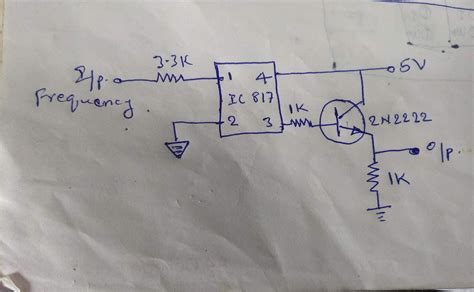 3.3K
I/p.
Frequency.
1 4
IC 817
2 3
1K
5V
2N2222
o/p.
1K